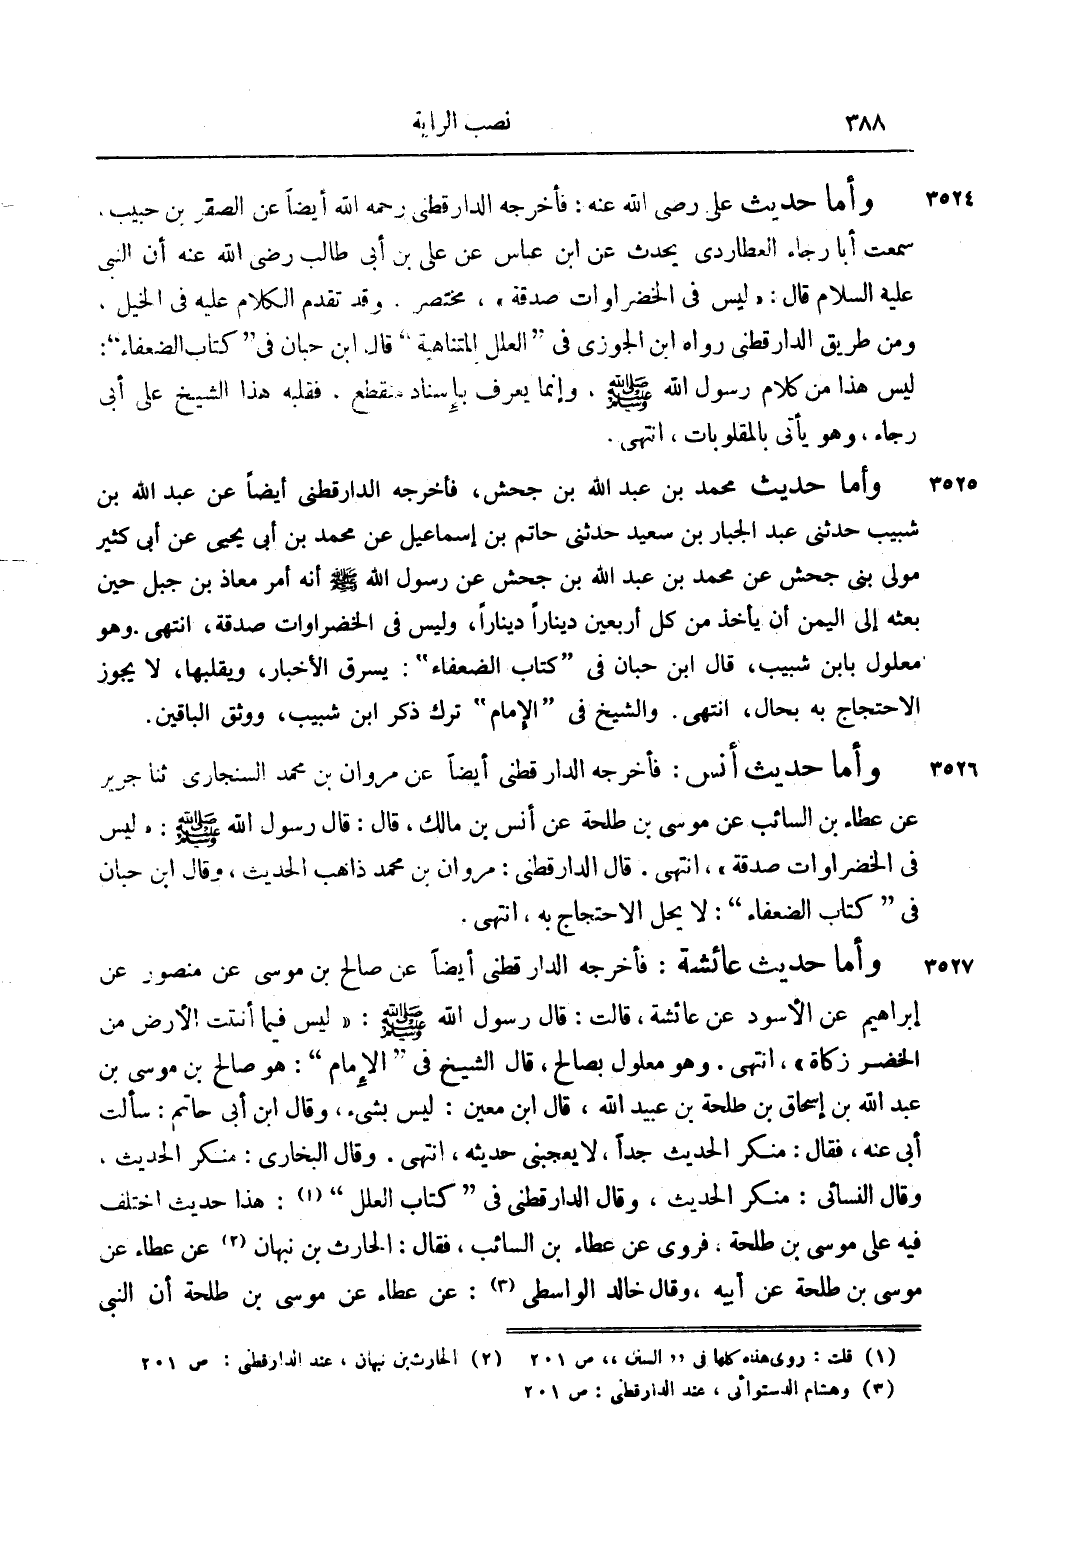 ٣٨٨ نصب الراية
٣٥٢٤ وأما حديث على رضى الله عنه : فأخرجه الدارقطنى رحمه الله أيضاً عن الصقر بن حبيب ،
سمعت أبا رجاء العطاردى يحدث عن ابن عباس عن على بن أبى طالب رضى الله عنه أن النبى
عليه السلام قال : « ليس فى الخضراوات صدقة » ، مختصر . وقد تقدم الكلام عليه فى الخيل .
ومن طريق الدارقطنى رواه ابن الجوزى فى ” العلل المتناهية “ قال ابن حبان فى ” كتاب الضعفاء “ :
ليس هذا من كلام رسول الله ﷺ ، وإنما يعرف بإسناد منقطع . فقلبه هذا الشيخ على أبى
رجاء ، وهو يأتى بالمقلوبات ، انتهى .
٣٥٢٥ وأما حديث محمد بن عبد الله بن جحش ، فأخرجه الدارقطنى أيضاً عن عبد الله بن
شبيب حدثنى عبد الجبار بن سعيد حدثنى حاتم بن إسماعيل عن محمد بن أبى يحيى عن أبى كثير
مولى بنى جحش عن محمد بن عبد الله بن جحش عن رسول الله ﷺ أنه أمر معاذ بن جبل حين
بعثه إلى اليمن أن يأخذ من كل أربعين ديناراً ديناراً ، وليس فى الخضراوات صدقة ، انتهى . وهو
معلول بابن شبيب ، قال ابن حبان فى ” كتاب الضعفاء “ : يسرق الأخبار ، ويقلبها ، لا يجوز
الاحتجاج به بحال ، انتهى . والشيخ فى ” الإمام “ ترك ذكر ابن شبيب ، ووثق الباقين .
٣٥٢٦ وأما حديث أنس : فأخرجه الدارقطنى أيضاً عن مروان بن محمد السنجارى ثنا جرير
عن عطاء بن السائب عن موسى بن طلحة عن أنس بن مالك ، قال : قال رسول الله ﷺ : « ليس
فى الخضراوات صدقة » ، انتهى . قال الدارقطنى : مروان بن محمد ذاهب الحديث ، وقال ابن حبان
فى ” كتاب الضعفاء “ : لا يحل الاحتجاج به ، انتهى .
٣٥٢٧ وأما حديث عائشة : فأخرجه الدارقطنى أيضاً عن صالح بن موسى عن منصور عن
إبراهيم عن الأسود عن عائشة ، قالت : قال رسول الله ﷺ : « ليس فيما أنبتت الأرض من
الخضر زكاة » ، انتهى . وهو معلول بصالح ، قال الشيخ فى ” الإمام “ : هو صالح بن موسى بن
عبد الله بن إسحاق بن طلحة بن عبيد الله ، قال ابن معين : ليس بشىء ، وقال ابن أبى حاتم : سألت
أبى عنه ، فقال : منكر الحديث جداً ، لا يعجبنى حديثه ، انتهى . وقال البخارى : منكر الحديث ،
وقال النسائى : منكر الحديث ، وقال الدارقطنى فى ” كتاب العلل “ (١) : هذا حديث اختلف
فيه على موسى بن طلحة ، فروى عن عطاء بن السائب ، فقال : الحارث بن نبهان (٢) عن عطاء عن
موسى بن طلحة عن أبيه ، وقال خالد الواسطى (٣) : عن عطاء عن موسى بن طلحة أن النبى
(١) قلت : روى هذه كلها فى ” السنن “ ص ٢٠١ (٢) الحارث بن نبهان ، عند الدارقطنى : ص ٢٠١
(٣) وهشام الدستوائى ، عند الدارقطنى : ص ٢٠١